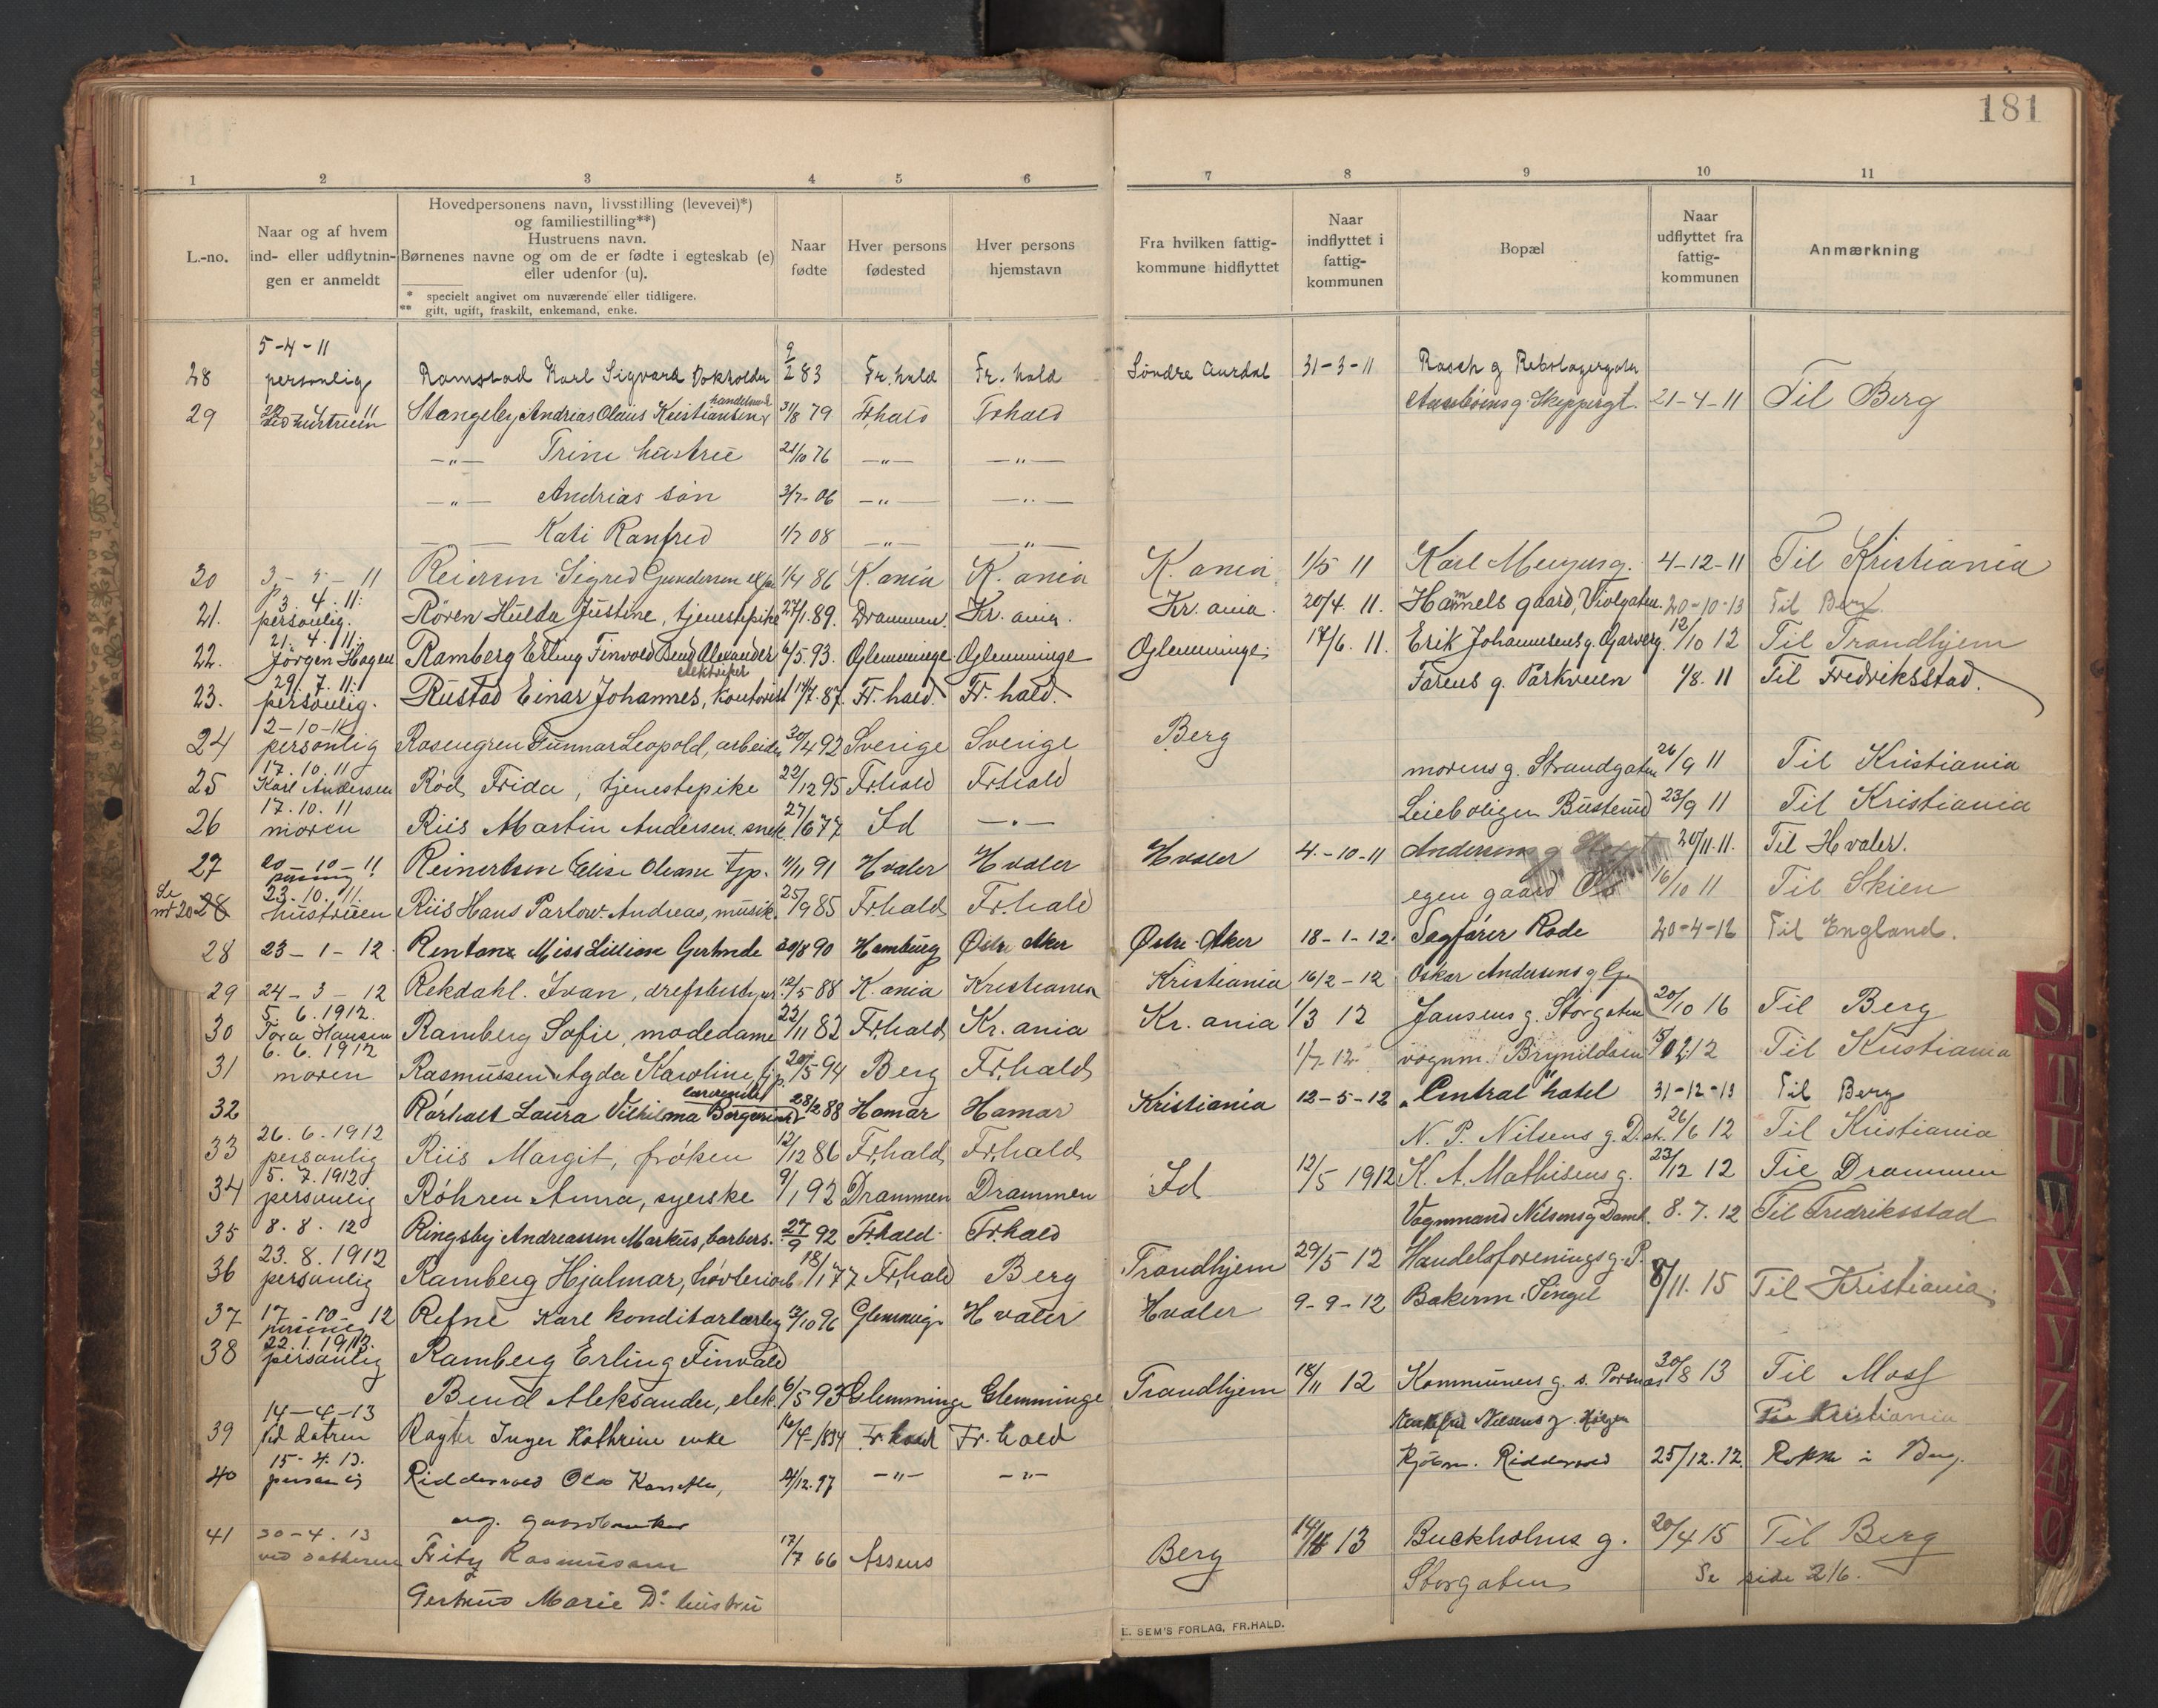 181
1 2 3 4 5 6 7 8 9 10 11
L.-no.
Naar og af hvem
ind- eller udflytnin-
gen er anmeldt
Hovedpersonens navn, livsstilling (levevei)*)
og familiestilling**)
Hustruens navn.
Børnenes navne og om de er fødte i egteskab (e)
eller udenfor (u).
* specielt angivet om nuværende eller tidligere.
** gift, ugift, fraskilt, enkemand, enke.
Naar
fødte
Hver persons
fødested
Hver persons
hjemstavn
Fra hvilken fattig-
kommune hidflyttet
Naar
indflyttet i
fattig-
kommunen
Bopæl
Naar
udflyttet fra
fattig-
kommunen
Anmærkning
5-4-11
28 personlig Ramstad Karl Sigvard Bokholder 9/2 83 Fr.hald Fr. hald Söndre Aurdal 31-3-11 Rasch g Rebslagergaten
handelsm
29 ved hustruen Stangeby Andrias Olaus Kristiansen 31/8 79 Frhald Frhald Skippergt. 21-4-11 Til Berg
-"- Trine hustru 21/10 76 -"- -"-
-"- Andrias søn 3/7-06 -"- -"-
Kati Ranfred 1/7 08 -"- -"-
30 3-5-11 Reiersen Sigred Gundersen 1/4 86 K.ania K. ania K. ania 1/5 11 Karl Meyers g. 4-12-11 Til Kristiania
3. 4. 11.
21. personlig. Røren Hulda Justine, tjenestepike 27/1.89. Drammen. Kr. ania. Kr. ania. 20/4. 11. Hammels gaard, Violgaten. 20-10-13 Til Berg.
21. 4. 11.
22. Jörgen Hagen Ramberg Erling Finvold Bend Alexander 6/5.93. Glemminge Glemminge Glemminge 17/6. 11. Erik Johannesens g. Garverg. 12/10 12 Til Trondhjem
elektriker
29. 7. 11.
23. personlig. Rustad Einar Johannes, kontorist 14/7.87. Fr. hald. Fr. hald. Farens g. Parkveien 1/8. 11 Til Fredriksstad.
2-10-11
24 personlig Rosengren Gunnar Leopold, arbeider 30/4 92 Sverige Sverige Berg
17. 10. 11
25 Karl Andersen Rød Frida, tjenestepike 22/12 95 Fr.hald Frhald morens g. Strandgaten 26/9 11 Til Kristiania
17. 10. 11
26 moren Riis Martin Andersen snek. 27/6 77 Id -"- Leieboligen Busterud 23/9 11 Til Kristiania
27 20-10-11 Reinertsen Elise Oleane tjp. 11/11 91 Hvaler Hvaler Hvaler 4-10-11 Andersens g 20/11-11. Til Hvaler.
Se 23. 10. 11.
nr 20 28 hustruen Riis Hans Parlow Andreas, musik. 25/9 85 Fr.hald Fr.hald egen gaard Os 16/10 11 Til Skien
28 23-1-12. Rentone Miss Lillian Gertrude 20/8 90 Hamburg Østre Aker Østre Aker 18-1-12. Sagfører Rode 20-4-12 Til England.
29 24-3-12 Rekdahl. Ivan, drefsbestyrer 12/5 88 K.ania Kristiania Kristiania 16/2-12 Oskar Andersens g
5. 6. 1912.
30 Tora Hansen Ramberg Sofie, modedame 22/11 82 Fr.hald Kr. ania Kr. ania 1/3 12 Jansens g. Storgaten 20/10 16 Til Berg
6. 6. 1912
31 moren Rasmussen Agda Karoline, tjp. 20/5 94 Berg Fr.hald 1/7-12 vognm. Brynildsen Til Kristiania
32 Rørholt Laura Vilhelma Borgersrud 28/2 88 Hamar Hamar Kristiania 12-5-12 "Central" hotel 31-12-13 Til Berg
26. 6. 1912
33 personlig Riis Margit, frøken 12/12 86 Fr.hald, Fr.hald, N. P. Nilsens g. 26/6 12 Til Kristiania
5. 7. 1912
34 personlig Röhren Anna, syerske 9/1 92 Drammen Drammen Id 12/5 1912 K. A. Mathisens g. 23/12 12 Til Drammen
35 8. 8. 12 Ringsby Andreassen Markus, barbers. 27/9 92 Fr.hald. Fr.hald Vognmand Nilsens g 8. 7. 12 Til Fredriksstad
23. 8. 1912
36 personlig Ramberg Hjalmar, 18/1 77 Fr.hald Berg Trondhjem 29/5 12 Handelsforenings g. P.
37 17-10-12 Refne Karl konditorlærling 13/10 96 Glemminge Hvaler Hvaler 9-9-12 Bakerm. Singel 8/11. 15 Til Kristiania.
22. 1. 1913.
38 personlig Ramberg Erling Finvald
Bend Aleksander, elek. 6/5 93 Glemminge Glemminge Trondhjem 18/11 12 Kommunens g. 30/8 13 Til Moss
14-4-13
39 Ved datren Ragte Inger Kathrine enke 16/4-1834 Fr. hald Fr. hald Nilsens g. Til Kristiania
15-4. 13.
40 personlig Riddervold Olav 21/12.97 -"- -"- Kjøbm. Riddervold 25/12.12. Rokke i Berg.
41 30-4. 13
ved datteren Fritz Rasmussen 17/7 66 Assens Berg 14/4 13 Buckholms g. 20/4 15 Til Berg
Storgaten Se side 216.
Gertrud Marie Do hustru
E. SEM'S FORLAG, FR.HALD.
S
T
U
W
X
Y
Z
Æ
Ø